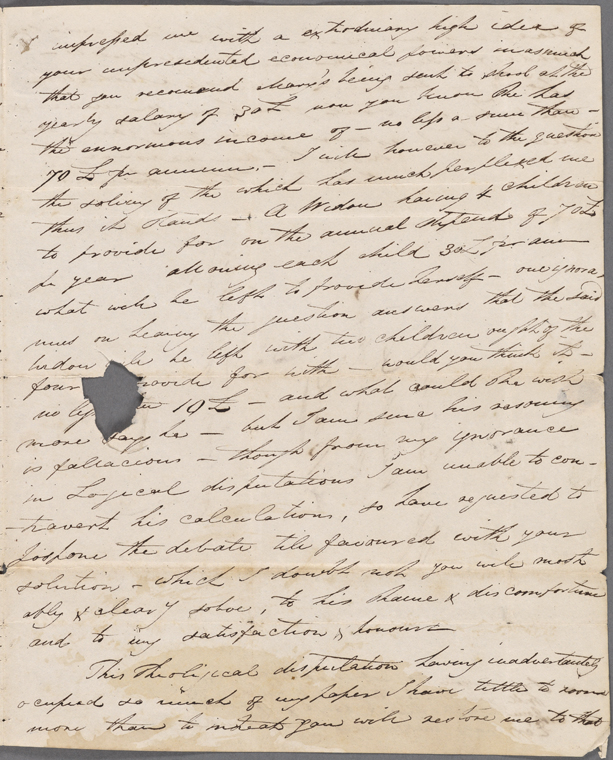 impressed me with a extrodinary high idea of
your unpresedented economical powers inasmuch
that you recomend Mary's being sent to shool at the
yearly salary of 30£ now you know she has
the ennormous income of – no less a sum than –
70£ pr annum. – I will however to the question
the solving of the which has much perplexed me
thus it stands – A Widow having 4 children
to provide for on the annual stipend of 70£
pr year allowing each child 30£ pr ann
what will be left to provide herself – one ignora
mus on hearing the question answers that the said
widow be left with two children out of the
four provide for with – would you think it –
no less 10£ – and what could she wish
more says he – but I am sure his resoning
is fallacious – though from my ignorance
in Logical disputations I am unable to con-
travert his calculations, so have requested to
pospone the debate till favoured with your
solution – which I doubt not you will most
ably & clearly solve, to his shame & discomforture
and to my satisfaction & honour
This theoligical disputation having inadvertantly
ocupied so much of my paper I have little to
more than to intreat you will restore me to that